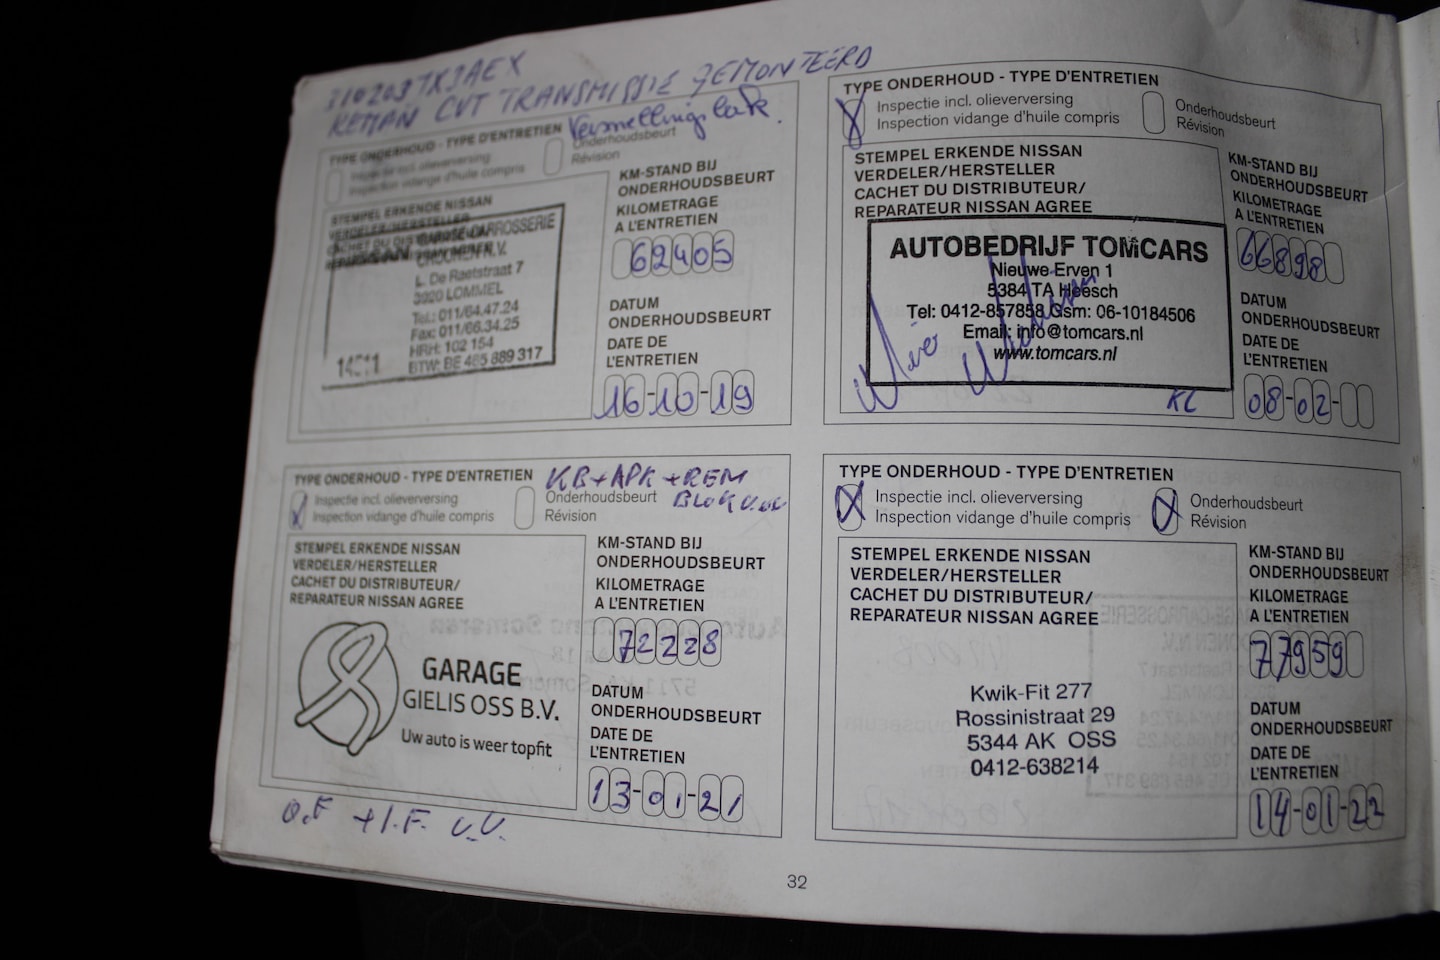 310203TX3AEX
REMAN CVT TRANSMISSIE GEMONTEERD
TYPE ONDERHOUD - TYPE D'ENTRETIEN Versnellingsbak.
Inspectie incl. olieverversing
Inspection vidange d'huile compris
Onderhoudsbeurt
Révision
STEMPEL ERKENDE NISSAN
VERDELER/HERSTELLER
GARAGE-CARROSSERIE
N.V.
L. De Raetstraat 7
3920 LOMMEL
Tel.: 011/64.47.24
Fax: 011/66.34.25
HRH: 102 154
BTW: BE 465 889 317
KM-STAND BIJ
ONDERHOUDSBEURT
KILOMETRAGE
A L'ENTRETIEN
62405
DATUM
ONDERHOUDSBEURT
DATE DE
L'ENTRETIEN
16-10-19
TYPE ONDERHOUD - TYPE D'ENTRETIEN
X Inspectie incl. olieverversing
Inspection vidange d'huile compris
Onderhoudsbeurt
Révision
STEMPEL ERKENDE NISSAN
VERDELER/HERSTELLER
CACHET DU DISTRIBUTEUR/
REPARATEUR NISSAN AGREE
AUTOBEDRIJF TOMCARS
Nieuwe Erven 1
5384 TA Heesch
Tel: 0412-857858 Gsm: 06-10184506
Email: info@tomcars.nl
www.tomcars.nl
KL
KM-STAND BIJ
ONDERHOUDSBEURT
KILOMETRAGE
A L'ENTRETIEN
66898
DATUM
ONDERHOUDSBEURT
DATE DE
L'ENTRETIEN
08-02-
TYPE ONDERHOUD - TYPE D'ENTRETIEN KB+APK+REM
BLOK V.V.
X Inspectie incl. olieverversing
Inspection vidange d'huile compris
Onderhoudsbeurt
Révision
STEMPEL ERKENDE NISSAN
VERDELER/HERSTELLER
CACHET DU DISTRIBUTEUR/
REPARATEUR NISSAN AGREE
GARAGE
GIELIS OSS B.V.
Uw auto is weer topfit
KM-STAND BIJ
ONDERHOUDSBEURT
KILOMETRAGE
A L'ENTRETIEN
72228
DATUM
ONDERHOUDSBEURT
DATE DE
L'ENTRETIEN
13-01-21
O.F +I.F. V.V.
TYPE ONDERHOUD - TYPE D'ENTRETIEN
X Inspectie incl. olieverversing
Inspection vidange d'huile compris
X Onderhoudsbeurt
Révision
STEMPEL ERKENDE NISSAN
VERDELER/HERSTELLER
CACHET DU DISTRIBUTEUR/
REPARATEUR NISSAN AGREE
Kwik-Fit 277
Rossinistraat 29
5344 AK OSS
0412-638214
KM-STAND BIJ
ONDERHOUDSBEURT
KILOMETRAGE
A L'ENTRETIEN
77959
DATUM
ONDERHOUDSBEURT
DATE DE
L'ENTRETIEN
14-01-22
32